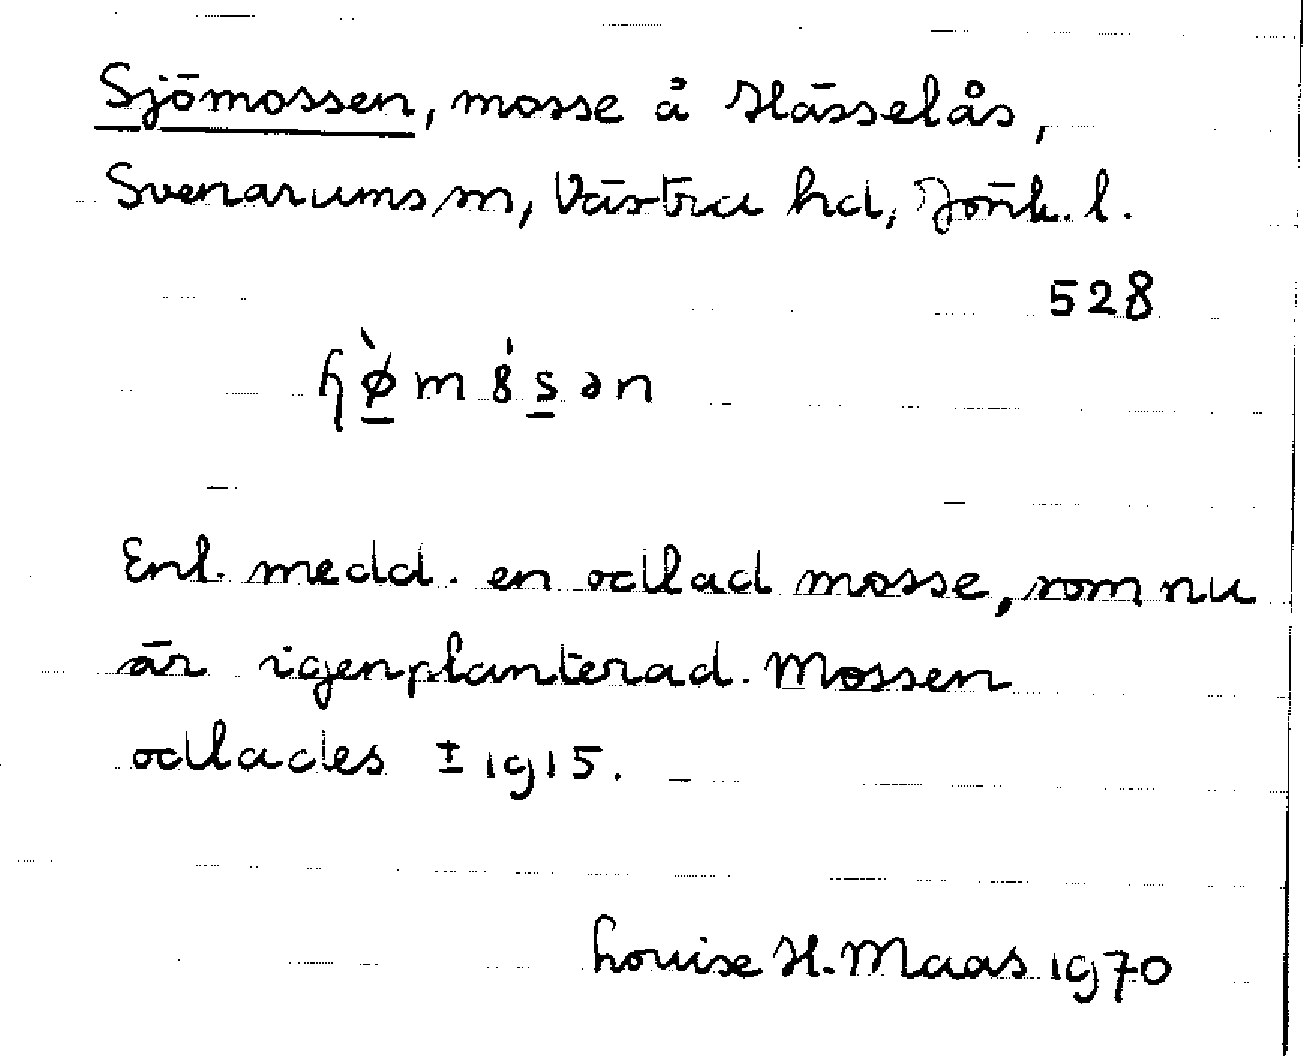 Sjömossen, mosse å Hässelås,
Svenarums sn, Västra hd, Jönk. l.
528
ɧø̀mȣ́sən
Enl. medd. en odlad mosse, som nu
är igenplanterad. Mossen
odlades ± 1915.
Louise H. Maas 1970